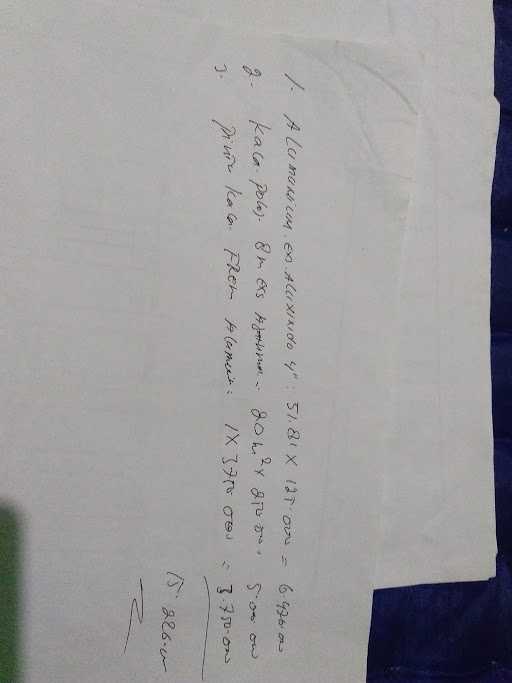 1. Aluminium. exs Aluxindo 4" : 51.81 X 125.000 = 6.476.000
2. Kaca. polos. 8m exs Asahimas = 20 m² X 250.000. 5.000.000
3. Pintu Kaca. Frem Alumini. 1 X 3750.000 = 3.750.000
15.226.000